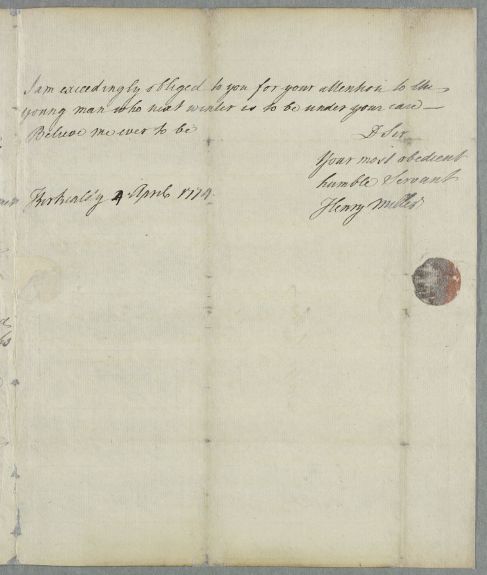 I am exceedingly obliged to you for your attention to the
young man who next winter is to be under your care—
Believe me ever to be
D Sir
Your most obedient
humble Servant
4 April 1774
Henry Miller